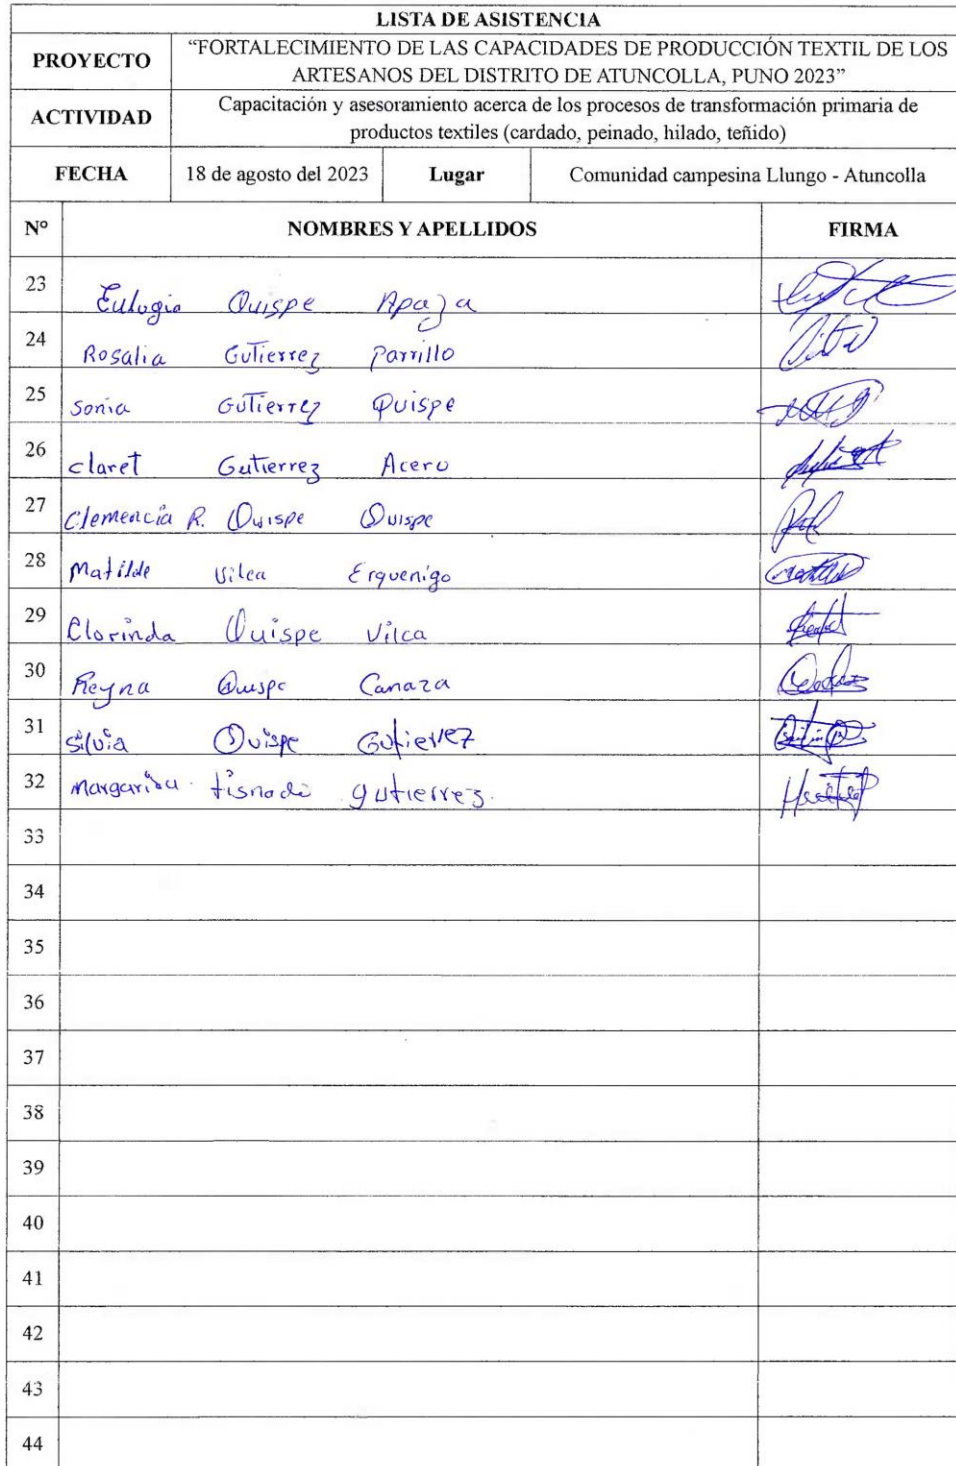 LISTA DE ASISTENCIA
PROYECTO
“FORTALECIMIENTO DE LAS CAPACIDADES DE PRODUCCIÓN TEXTIL DE LOS
ARTESANOS DEL DISTRITO DE ATUNCOLLA, PUNO 2023”
ACTIVIDAD
Capacitación y asesoramiento acerca de los procesos de transformación primaria de
productos textiles (cardado, peinado, hilado, teñido)
FECHA 18 de agosto del 2023 Lugar Comunidad campesina Llungo - Atuncolla
N° NOMBRES Y APELLIDOS FIRMA
23 Eulogio Quispe Apaza
24 Rosalia Gutierrez Parrillo
25 Sonia Gutierrez Quispe
26 claret Gutierrez Acero
27 Clemencia R. Quispe Quispe
28 Matilde Vilca Erquenigo
29 Clorinda Quispe Vilca
30 Reyna Quispe Canaza
31 Silvia Quispe Gutierrez
32 Margarita tisnado gutierrez.
33
34
35
36
37
38
39
40
41
42
43
44